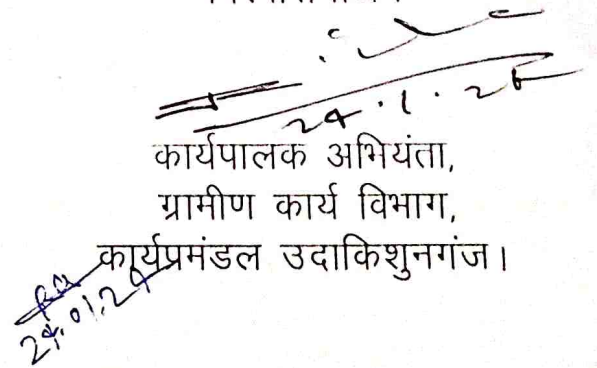 24.1.25
कार्यपालक अभियंता,
ग्रामीण कार्य विभाग,
कार्यप्रमंडल उदाकिशुनगंज।